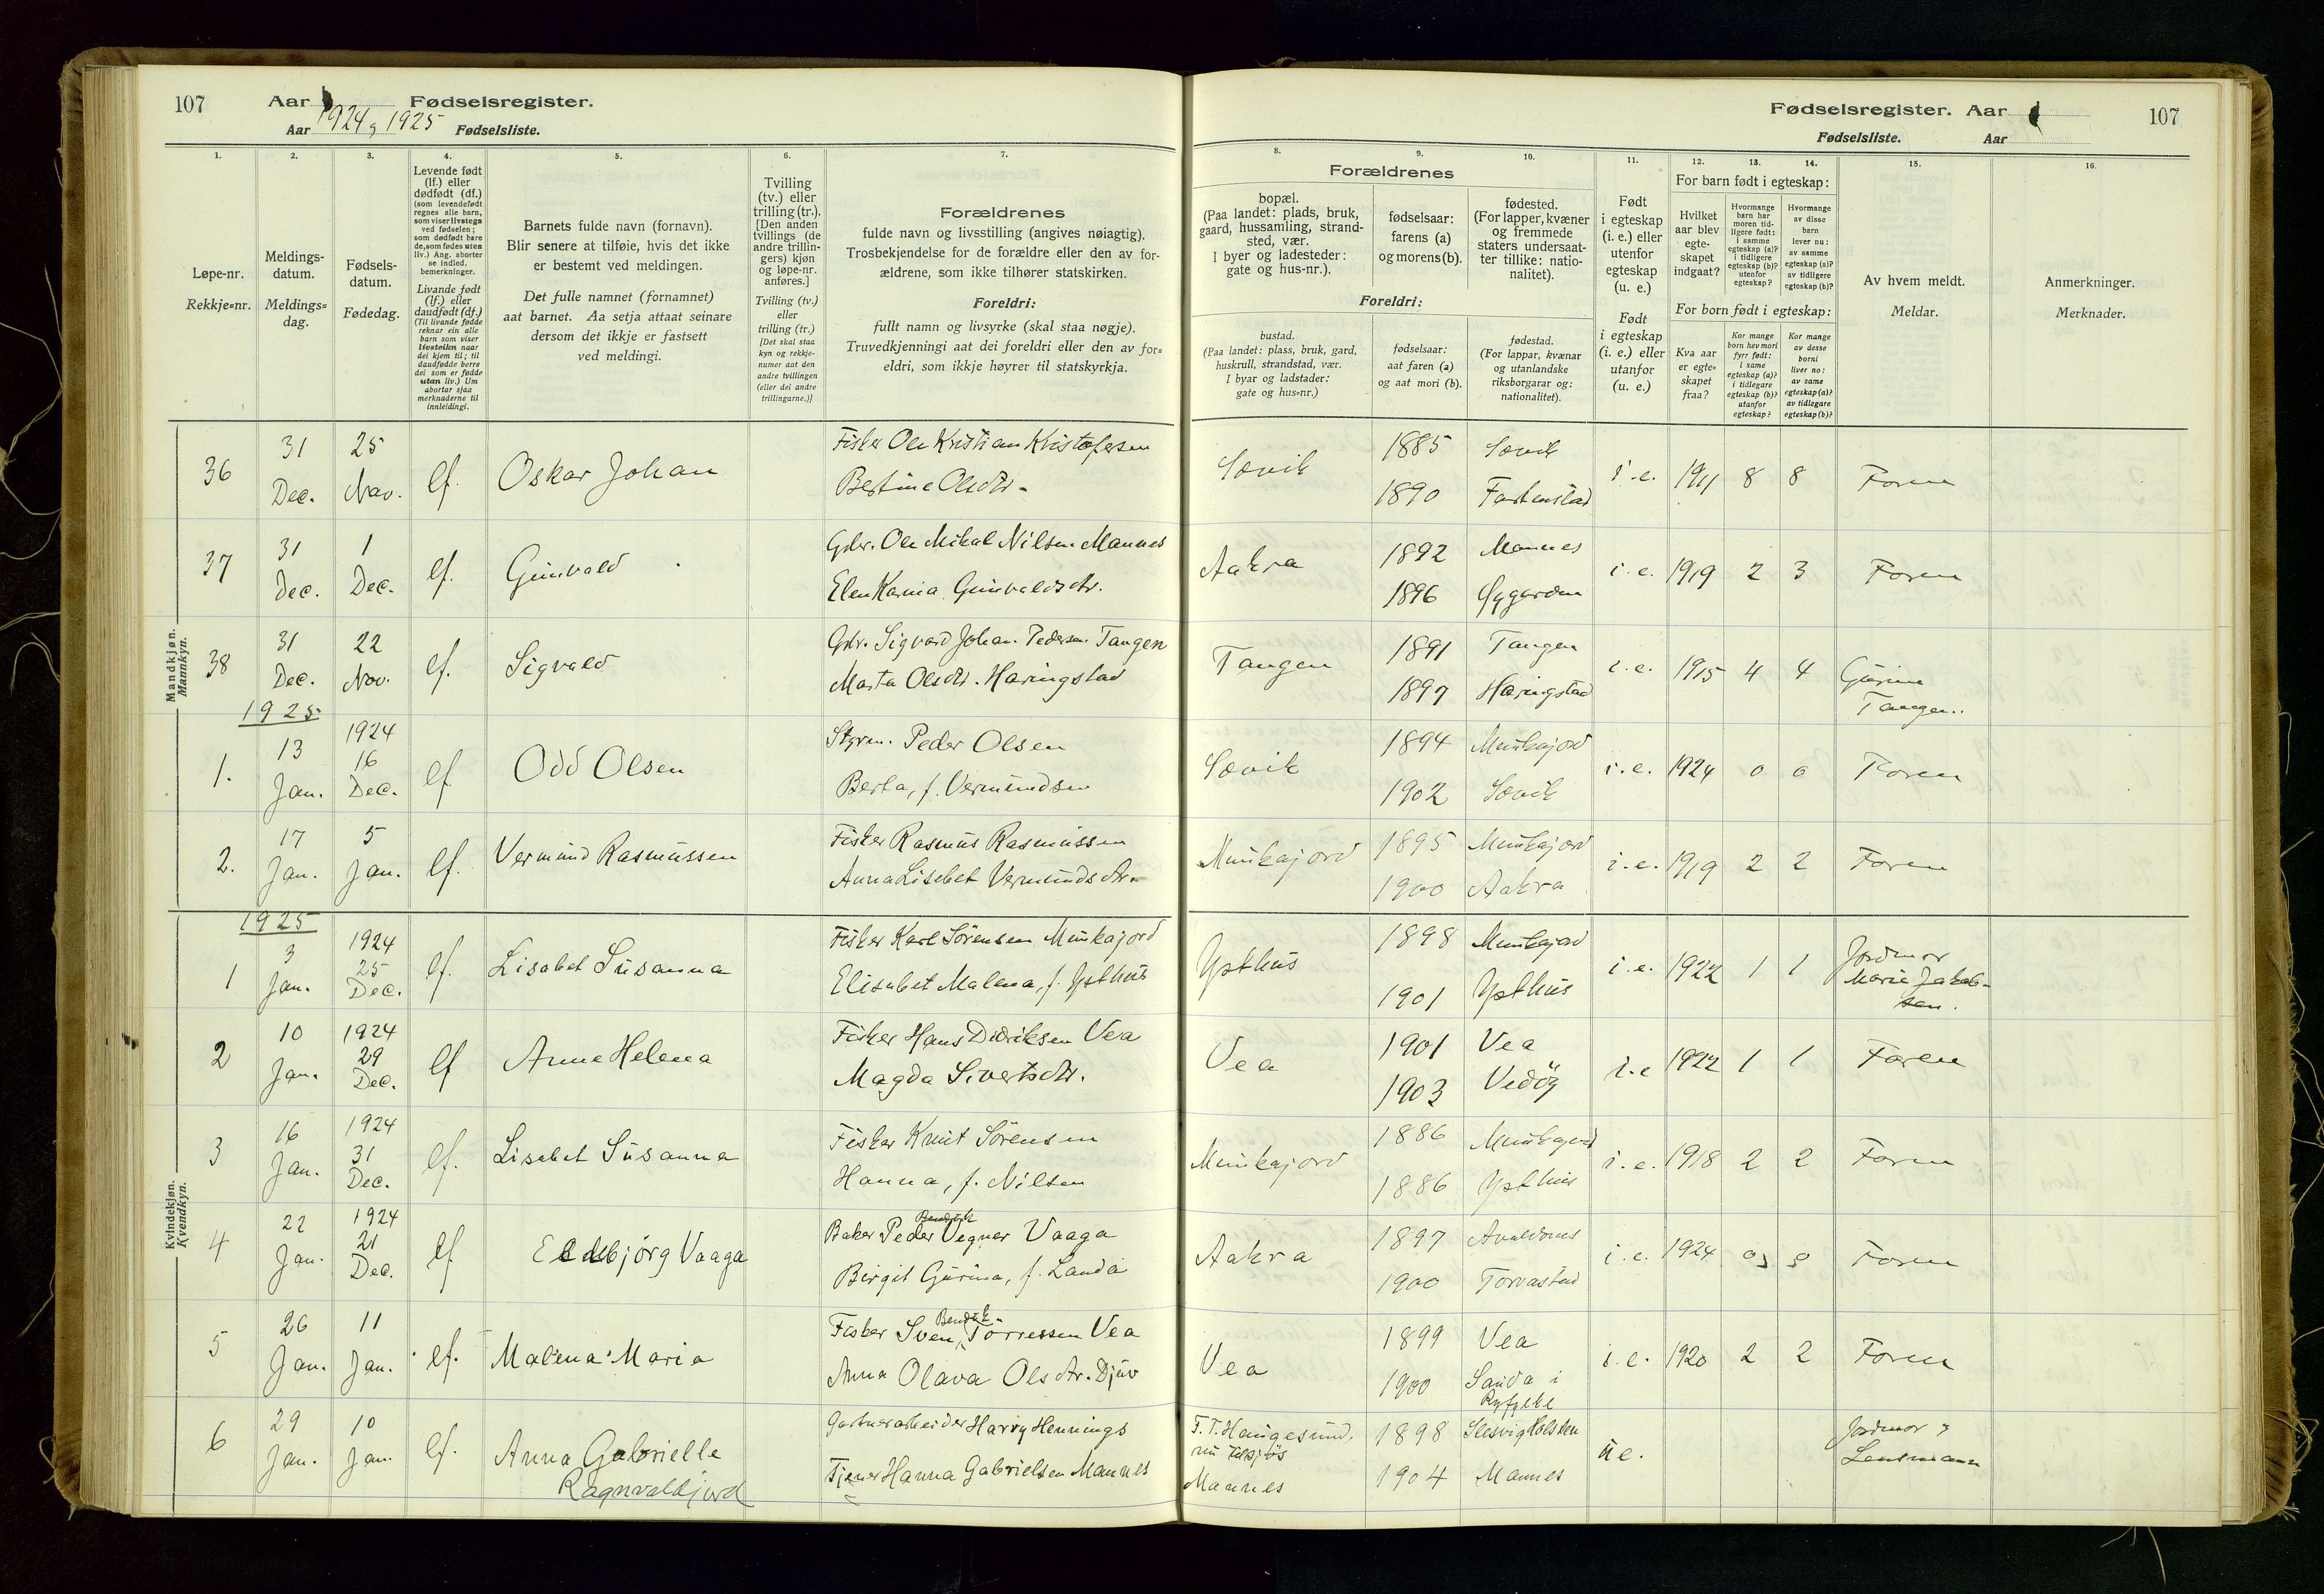 107 Aar Fødselsregister.
Aar 1924, 1925 Fødselsliste.
Fødselsregister. Aar 107
Fødselsliste. Aar
1. 2. 3. 4. 5. 6. 7.
Løpe-nr.
Rekkje=nr.
Meldings-
datum.
Meldings=
dag.
Fødsels-
datum.
Fødedag.
Levende født
(lf.) eller
dødfødt (df.)
(som levendefødt
regnes alle barn,
som viser livstegn
ved fødselen;
som dødfødt bare
de, som fødes uten
liv.) Ang. aborter
se indled.
bemerkninger.
Livande født
(lf.) eller
daudfødt (df.)
(Til livande fødde
reknar ein alle
barn som viser
livsteikn naar
dei kjem til; til
daudfødde berre
dei som er fødde
utan liv.) Um
abortar sjaa
merknaderne til
innleidingi.
Barnets fulde navn (fornavn).
Blir senere at tilføie, hvis det ikke
er bestemt ved meldingen.
Det fulle namnet (fornamnet)
aat barnet. Aa setja attaat seinare
dersom det ikkje er fastsett
ved meldingi.
Tvilling
(tv.) eller
trilling (tr.).
[Den anden
tvillings (de
andre trillin-
gers) kjøn
og løpe-nr.
anføres.]
Tvilling (tv.)
eller
trilling (tr.)
[Det skal staa
kyn og rekkje-
numer aat den
andre tvillingen
(eller dei andre
trillingarne.)]
Forældrenes
fulde navn og livsstilling (angives nøiagtig).
Trosbekjendelse for de forældre eller den av for-
ældrene, som ikke tilhører statskirken.
Foreldri:
fullt namn og livsyrke (skal staa nøgje).
Truvedkjenningi aat dei foreldri eller den av for=
eldri, som ikkje høyrer til statskyrkja.
8. 9. 10. 11. 12. 13. 14. 15. 16.
Forældrenes
bopæl.
(Paa landet: plads, bruk,
gaard, hussamling, strand-
sted, vær.
I byer og ladesteder:
gate og hus-nr.).
fødselsaar:
farens (a)
og morens (b).
fødested.
(For lapper, kvæner
og fremmede
staters undersaat-
ter tillike: natio-
nalitet).
Foreldri:
bustad.
(Paa landet: plass, bruk, gard,
huskrull, strandstad, vær.
I byar og ladstader:
gate og hus=nr.)
fødselsaar:
aat faren (a)
og aat mori (b).
fødestad.
(For lappar, kvænar
og utanlandske
riksborgarar og:
nationalitet).
Født
i egteskap
(i. e.) eller
utenfor
egteskap
(u. e.)
Født
i egteskap
(i. e.) eller
utanfor
(u. e.)
For barn født i egteskap:
Hvilket
aar blev
egte-
skapet
indgaat?
Hvormange
barn har
moren tid-
ligere født:
i samme
egteskap (a)?
i tidligere
egteskap (b)?
utenfor
egteskap?
Hvormange
av disse
barn
lever nu:
av samme
egteskap (a)?
av tidligere
egteskap (b)?
For born født i egteskap:
Kva aar
er egte=
skapet
fraa?
Kor mange
born hev mori
fyrr født:
i same
egteskap (a)?
i tidlegare
egteskap (b)?
utanfor
egteskap?
Kor mange
av desse
borni
liver no:
av same
egteskap (a)?
av tidlegare
egteskap (b)?
Av hvem meldt.
Meldar.
Anmerkninger.
Merknader.
Mandkjøn.
Mannkyn.
36 31 Dec. 25 Nov. lf. Oskar Johan
Fisker Ole Kristian Kristofersen
Bertine Olsdtr.
Sævik 1885 Sævik
1890 Fartenstad
i.e. 1911 8 8 Faren
37 31 Dec. 1 Dec. lf. Gunvald
Gdr. Ole Mikal Nilsen Mannes
Elen Karina Gunvaldsdtr.
Aakra 1892 Mannes
1896 Øygarden
i.e. 1919 2 3 Faren
38 31 Dec. 22 Nov. lf. Sigvald
Gdr. Sigvard Johan Pedersen Tangen
Marta Olsdtr. Haringstad
Tangen 1891 Tangen
1897 Haringstad
i.e. 1915 4 4 Gurine
Tangen.
1925
1. 13 Jan. 1924 16 Dec. lf Odd Olsen
Styrm. Peder Olsen
Berta, f. Vermundsen
Sævik 1894 Munkajord
1902 Sævik
i.e. 1924 0 0 Faren
2. 17 Jan. 5 Jan. lf. Vermund Rasmussen
Fisker Rasmus Rasmussen
Anna Lisabet Vermundsdtr.
Munkajord 1895 Munkajord
1900 Aakra
i.e. 1919 2 2 Faren
Kvindekjøn.
Kvendkyn.
1925
1 3 Jan. 1924 25 Dec. lf. Lisabet Susanna
Fisker Karl Sörensen Munkajord
Elisabet Malena, f. Ysthus
Ysthus 1898 Munkajord
1901 Ysthus
i.e. 1922 1 1 Jordmor
Marie Jakob-
sen.
2 10 Jan. 1924 29 Dec. lf Anne Helena
Fisker Hans Didriksen Vea
Magda Sivertsdtr.
Vea 1901 Vea
1903 Vedöy
i.e 1922 1 1 Faren
3 16 Jan. 1924 31 Dec. lf. Lisabet Susanna
Fisker Knut Sörensen
Hanna, f. Nilsen
Munkajord 1886 Munkajord
1886 Ysthus
i.e. 1918 2 2 Faren
4 22 Jan. 1924 21 Dec. lf Eldbjörg Vaaga
Bendik
Baker Peder Vegner Vaaga
Birgit Gurina, f. Landa
Aakra 1897 Avaldsnes
1900 Torvastad
i.e. 1924 0 0 Faren
5 26 Jan. 11 Jan. lf. Malena Maria
Bendik
Fisker Sven Torressen Vea
Anna Olava Olsdtr. Djuv
Vea 1899 Vea
1900 Sauda i
Ryfylke
i.e. 1920 2 2 Faren
6 29 Jan. 10 Jan. lf. Anna Gabrielle
Ragnvaldjord
Gartnerarbeider Harry Hennings
Tjener Hanna Gabrielsen Mannes
F. T. Haugesund,
nu
Mannes
1898 Slesvig Holsten
1904 Mannes
u e. Jordmor
Lensmann